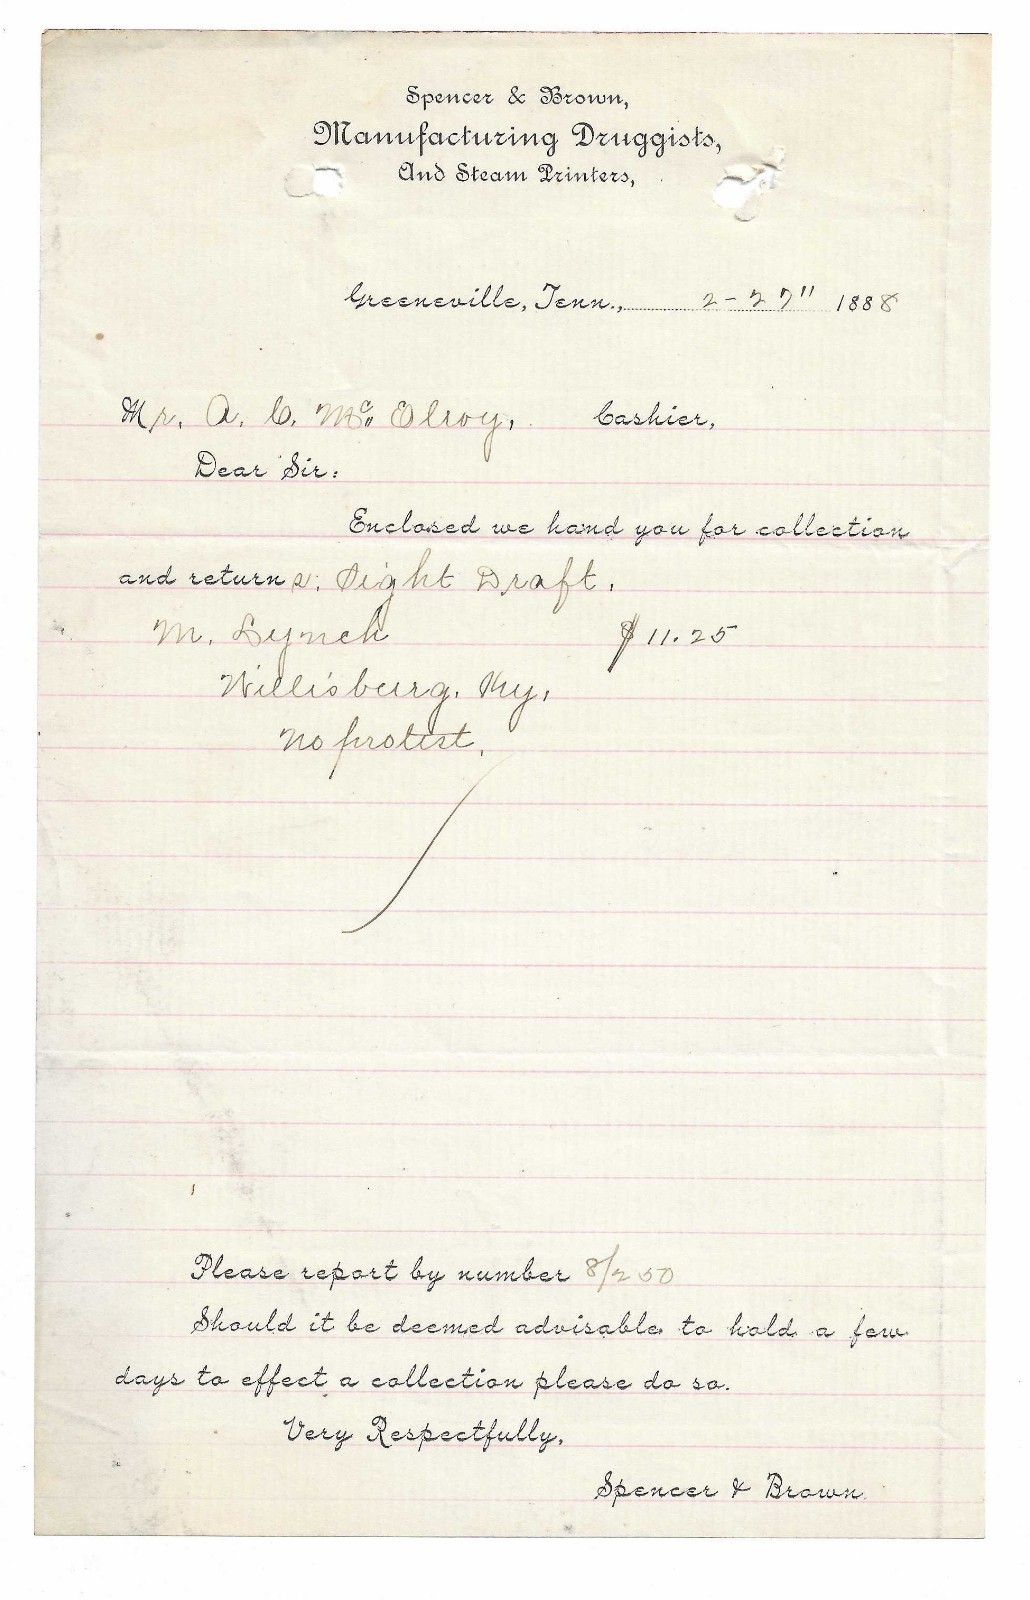 Spencer & Brown,
Manufacturing Druggists,
And Steam Printers,
Greeneville, Tenn., 2-27" 1888
Mr. A. C. Mc Elroy, Cashier,
Dear Sir:
Enclosed we hand you for collection
and returns: Sight Draft.
M. Lynch $11.25
Willisburg, Ky,
No protest,
Please report by number 8/250
Should it be deemed advisable to hold a few
days to effect a collection please do so.
Very Respectfully,
Spencer & Brown.